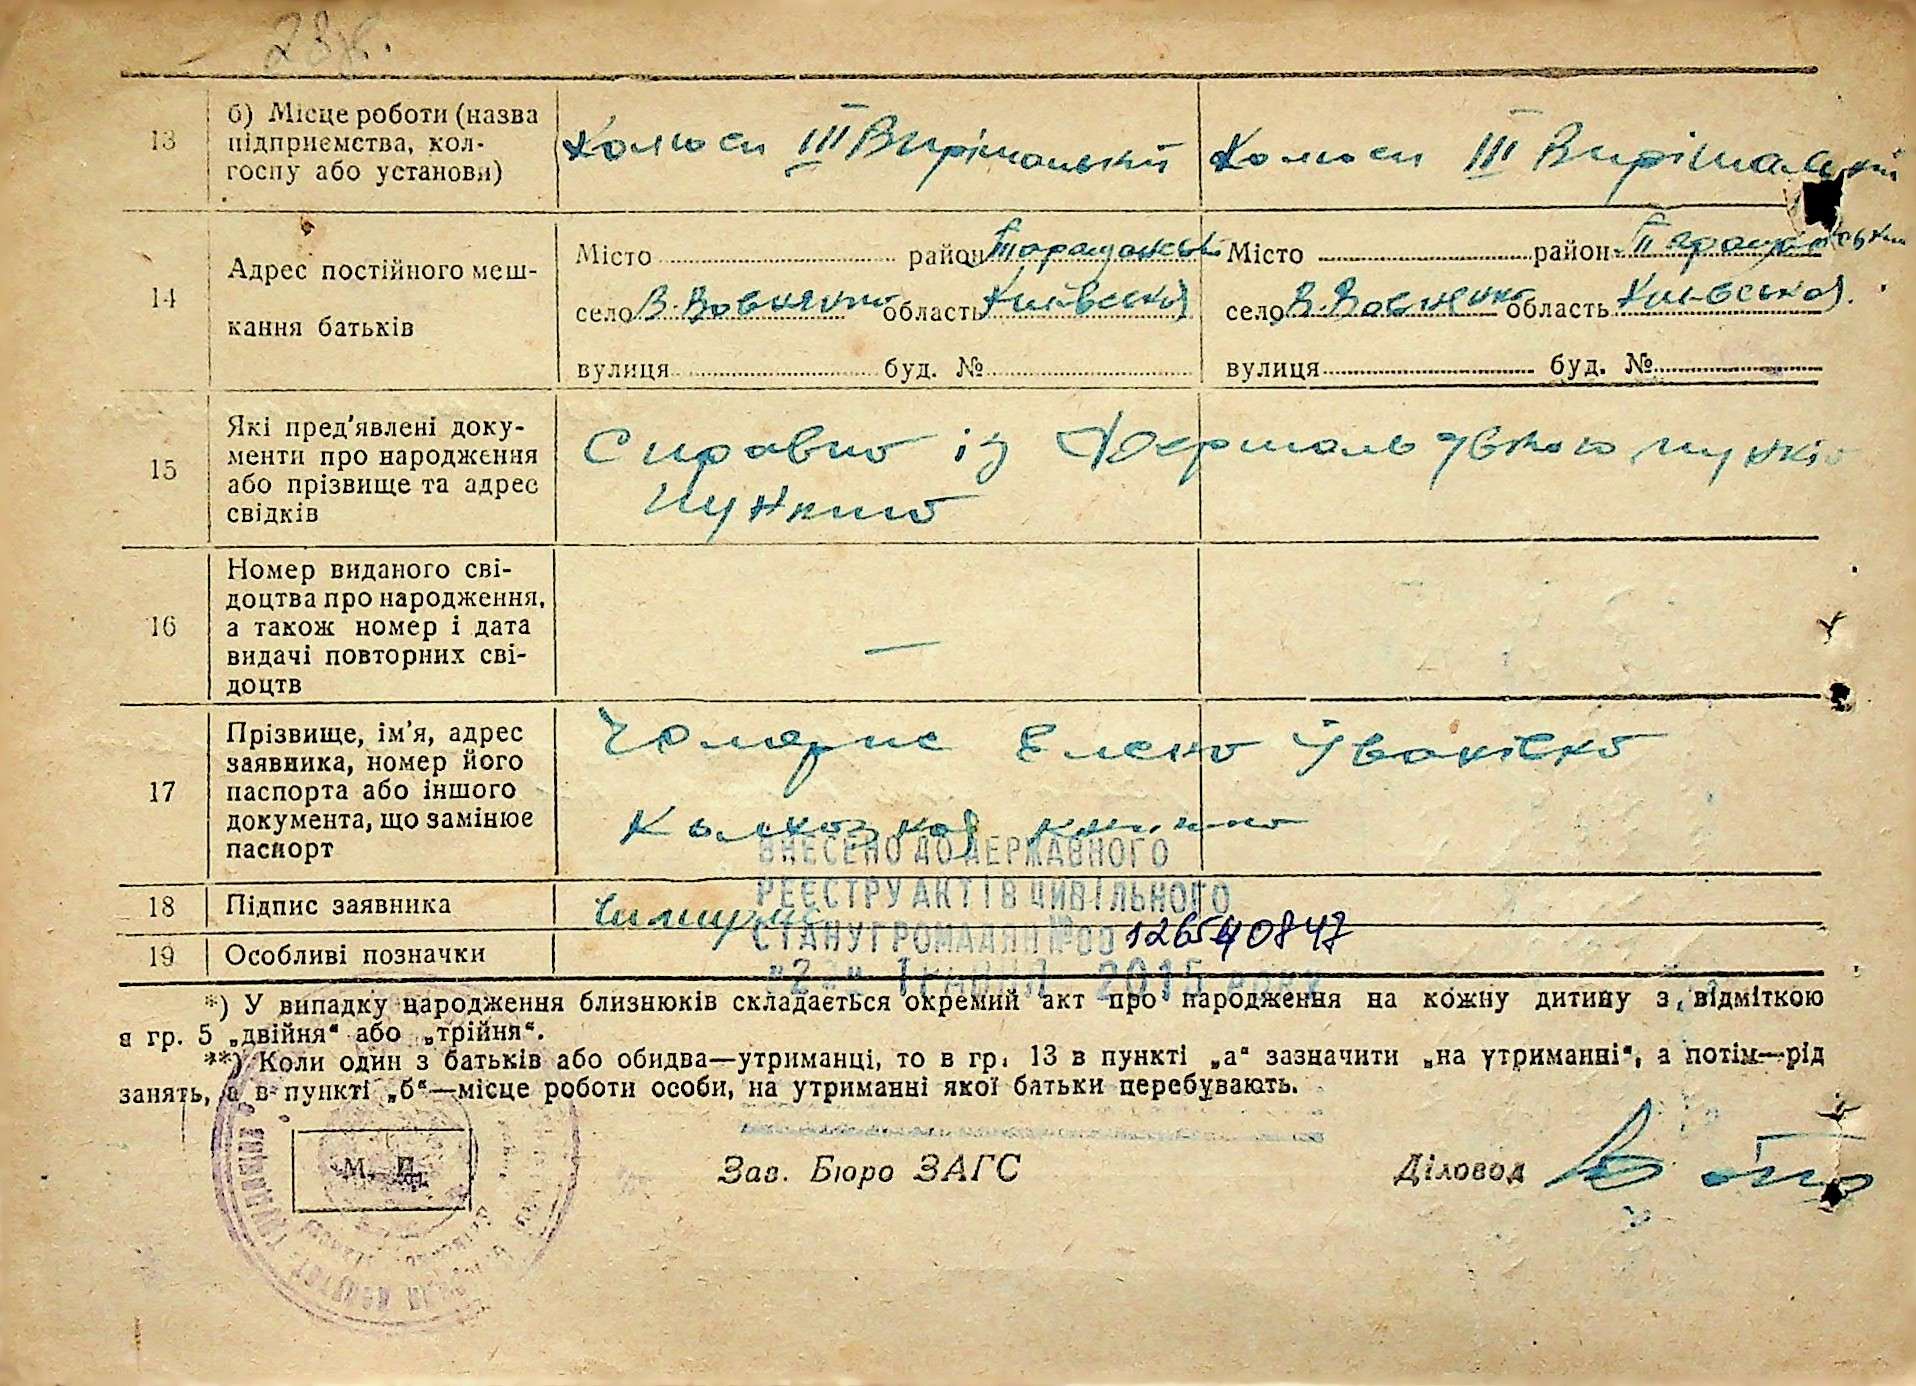 28ж.
13
б) Місце роботи (назва
підприємства, кол-
госпу або установи)
III Вирішальний
III Вирішальний
14
Адрес постійного меш-
кання батьків
Місто район Таращанськ
село В. Вовнянка область Київська
вулиця буд. №
Місто район Таращанський
село В. Вовнянка область Київська
вулиця буд. №
15
Які пред'явлені доку-
менти про народження
або прізвище та адрес
свідків
Справка із
пункта
16
Номер виданого сві-
доцтва про народження,
а також номер і дата
видачі повторних сві-
доцтв
—
17
Прізвище, ім'я, адрес
заявника, номер його
паспорта або іншого
документа, що замінює
паспорт
Елена Івановна
Колхозная книжка
ВНЕСЕНО ДО ДЕРЖАВНОГО
РЕЄСТРУ АКТІВ ЦИВІЛЬНОГО
СТАНУ ГРОМАДЯН №00126540847
"22" травня 2015 року
18
Підпис заявника
19
Особливі позначки
*) У випадку народження близнюків складається окремий акт про народження на кожну дитину з відміткою
в гр. 5 „двійня“ або „трійня“.
**) Коли один з батьків або обидва—утриманці, то в гр. 13 в пункті „а“ зазначити „на утриманні“, а потім—рід
занять, а в пункті „б“—місце роботи особи, на утриманні якої батьки перебувають.
М. П.
Зав. Бюро ЗАГС
Діловод